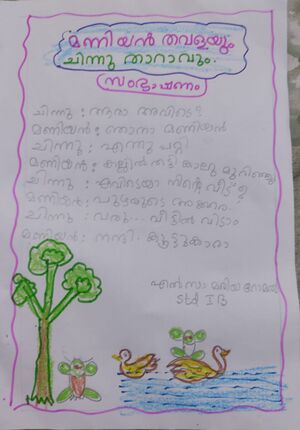 മണിയൻ തവളയും
ചിന്നു താറാവും.
സംഭാഷണം
ചിന്നു : ആരാ അവിടെ?
മണിയൻ : ഞാനാ മണിയൻ
ചിന്നു : എന്തു പറ്റി
മണിയൻ : കല്ലിൽ തട്ടി കാലു മുറിഞ്ഞു
ചിന്നു : എവിടെയാ നിന്റെ വീട് ?
മണിയൻ : പുഴയുടെ
ചിന്നു : വരൂ... വീട്ടിൽ വിടാം
മണിയൻ : നന്ദി കൂട്ടുകാരാ
എൽസാ മരിയ
Std I B